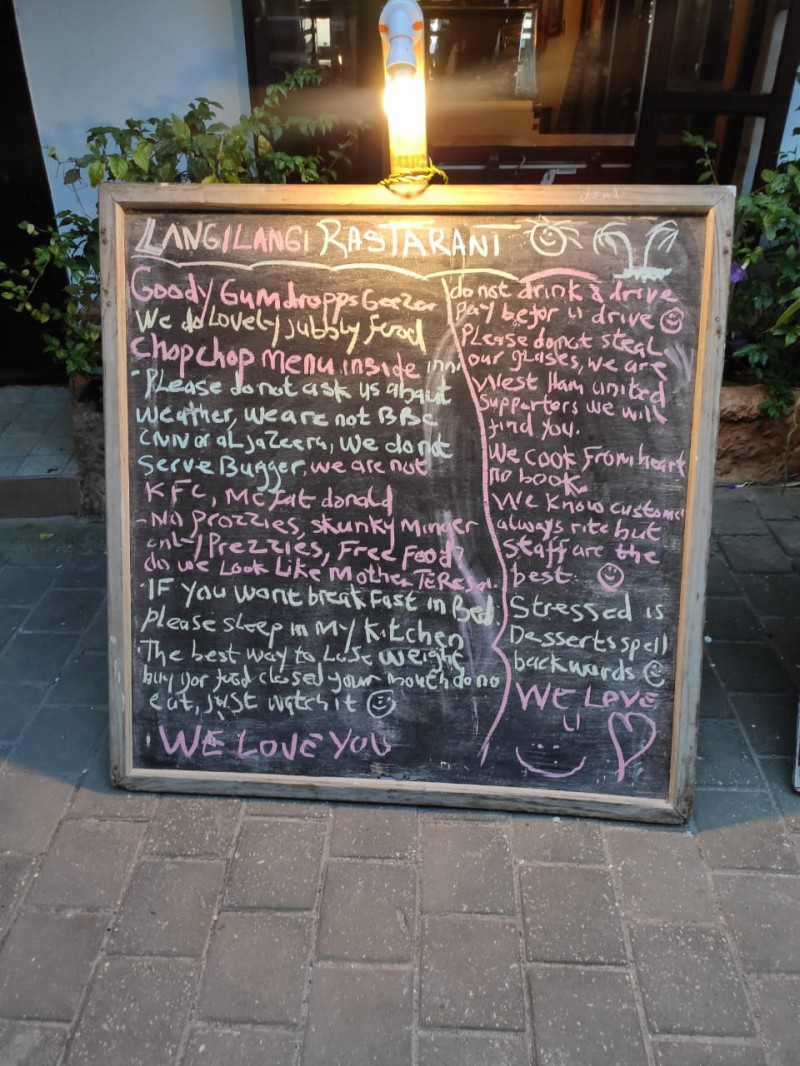 LANGILANGI RASTARANT
Goody Gumdropps Geezer
We do Lovely Jubbly food
chop chop menu inside inn
- Please do not ask us about
weather, we are not BBC
CNN or aL Jazeera, we do not
Serve Bugger, we are not
KFC, Mc fat donald
- No prozzies, skunky Minger
only Prezzies, Free Food?
do we Look Like Mother TeResa.
· IF You wont break Fast in Bed.
please sleep in My kitchen
· The best way to Lose weight
buy yor food closed your mouth do no
eat, just watch it
WE LOVE YOU
do not drink & drive
pay befor u drive
Please do not steal
our glases, we are
West Ham united
Supporters we will
find you.
We cook from heart
no book
We Know custome
always rite but
staff are the
best.
Stressed is
Desserts spell
backwords
WE LOVE
U